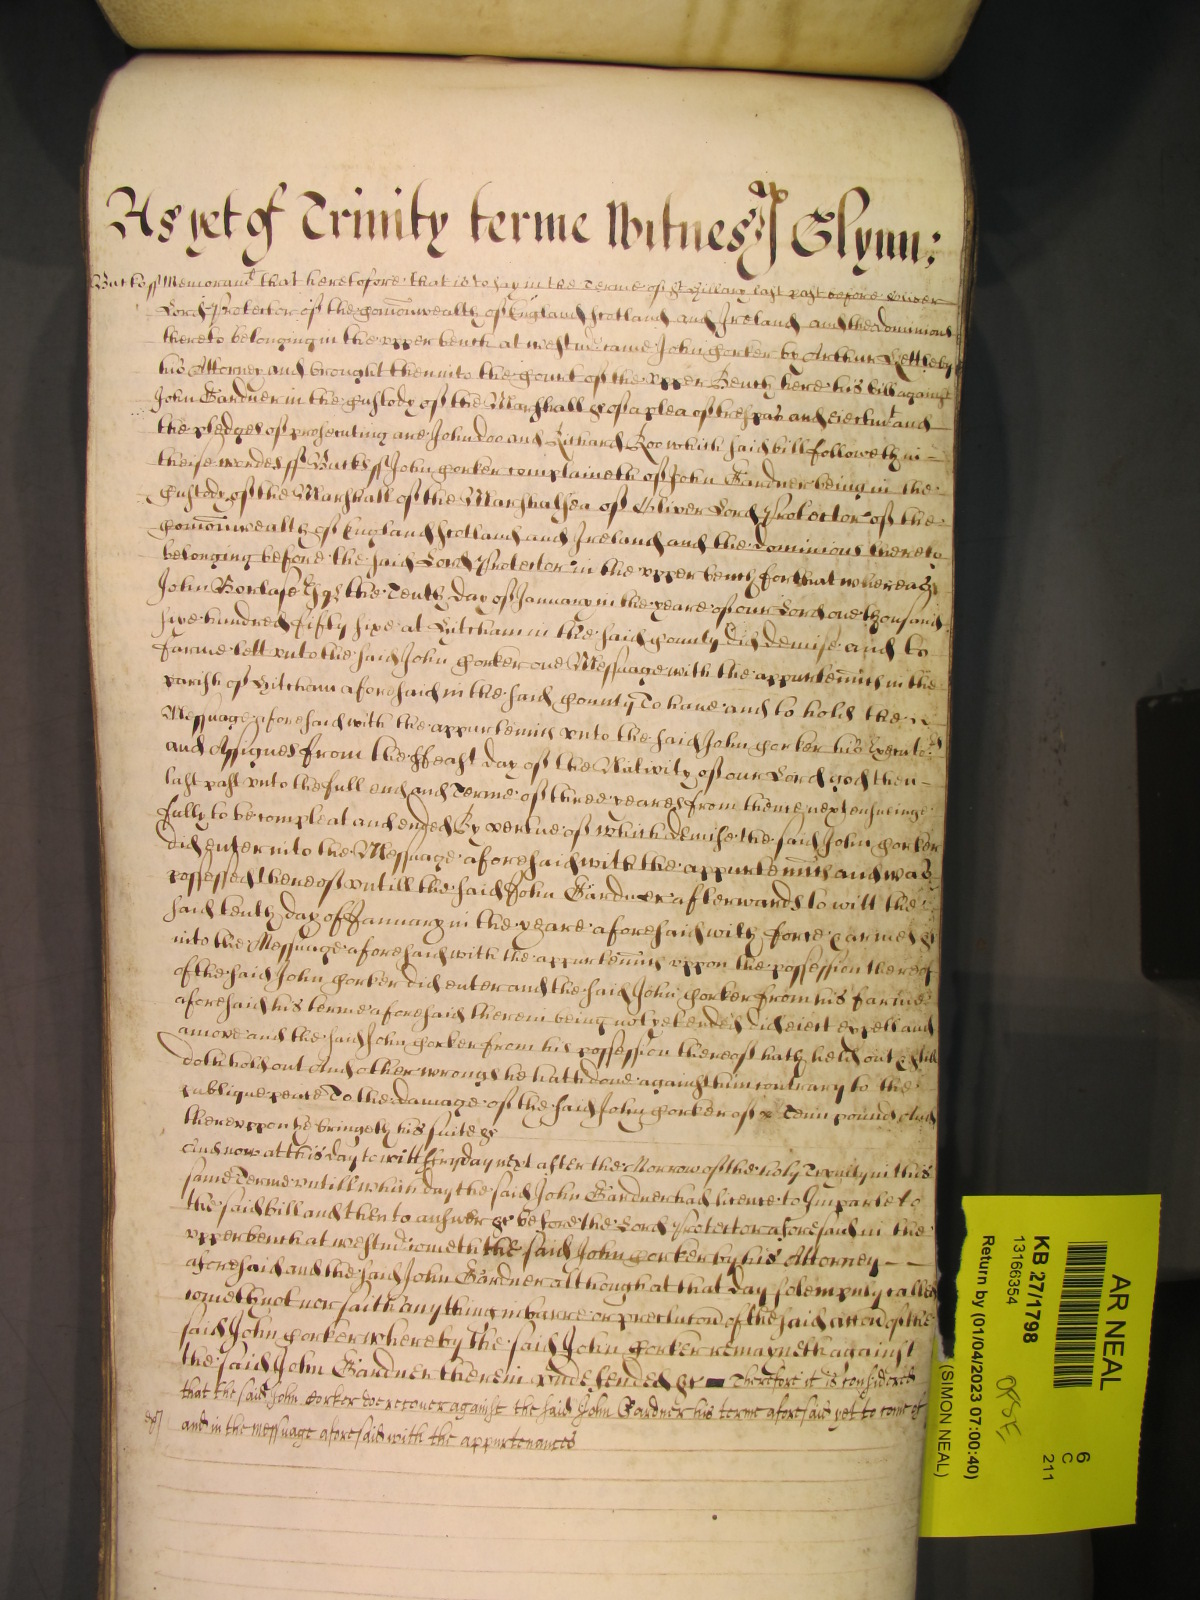 As yet of Trinity terme Witnes J Glynn:
Bucks ss Memorand that heretofore that is to say in the Terme of St Hillary last past before Oliver
Lord Protector of the Comonwealth of England Scotland and Ireland and the dominions
thereto belonging in the upper bench at westmr came John Corker by Arthur
his Attorney and brought then into the Court of the upper Bench here his bill against
John Gardner in the Custody of the Marshall &c of a plea of trespas and eiectmt and
the pledges of prosecuting are John doo and Richard Roo which said bill followeth in
theise wordes ss Bucks ss John Corker complaineth of John Gardner being in the
Custody of the Marshall of the Marshalsea of Oliver Lord Protector of the
Comonwealth of England Scotland and Ireland and the dominions thereto
belonging before the said Lord Protector in the upper bench for that whereas
John Borlase Esqr the Tenth day of January in the yeare of our Lord one thousand
sixe hundred fifty sixe at Hitcham in the said County did demise and to
farme lett unto the said John Corker one Messuage with the appurtennts in the
parish of Hitcham aforesaid in the said County To have and to hold the
Messuage aforesaid with the appurtennts unto the said John Corker his Executors
and Assignes from the ffeast day of the Nativity of our Lord god then
last past unto the full end and Terme of three yeares from thence next ensueinge
fully to be compleat and ended By vertue of which demise the said John Corker
did enter into the Messuage aforesaid with the appurtennts and was
possessed thereof untill the said John Gardner afterwards to witt the
said tenth day of January in the yeare aforesaid with force & armes &c
into the Messuage aforesaid with the appurtennts uppon the possession thereof
of the said John Corker did enter and the said John Corker from his farme
aforesaid his terme aforesaid therein being not yet ended did eiect expell and
amove and the said John Corker from his possession thereof hath held out & still
doth hold out And other wrongs he hath done against him contrary to the
publique peace To the damage of the said John Corker of Tenn pounds And
thereuppon he bringeth his suite &c
And now at this day to witt ffryday next after the Morrow of the holy Trinity in this
same Terme untill which day the said John Gardner had licence to Imparle to
the said bill and then to answer &c before the Lord Protector aforesaid in the
upper bench at westmr cometh the said John Corker by his Attorney
aforesaid and the said John Gardner although at that day solempnly called
cometh not nor saith anything in barre or preclucon of the said accon of the
said John Corker whereby the said John Corker remayneth against
the said John Gardner therein undefended &c Therefore it is considered
that the said John Corker doe recover against the said John Gardner his terme aforesaid yet to come of
and in the messuage aforesaid with the appurtenances
AR NEAL
6
C
211
KB 27/1798
13166354
Return by (01/04/2023 07:00:40)
(SIMON NEAL)